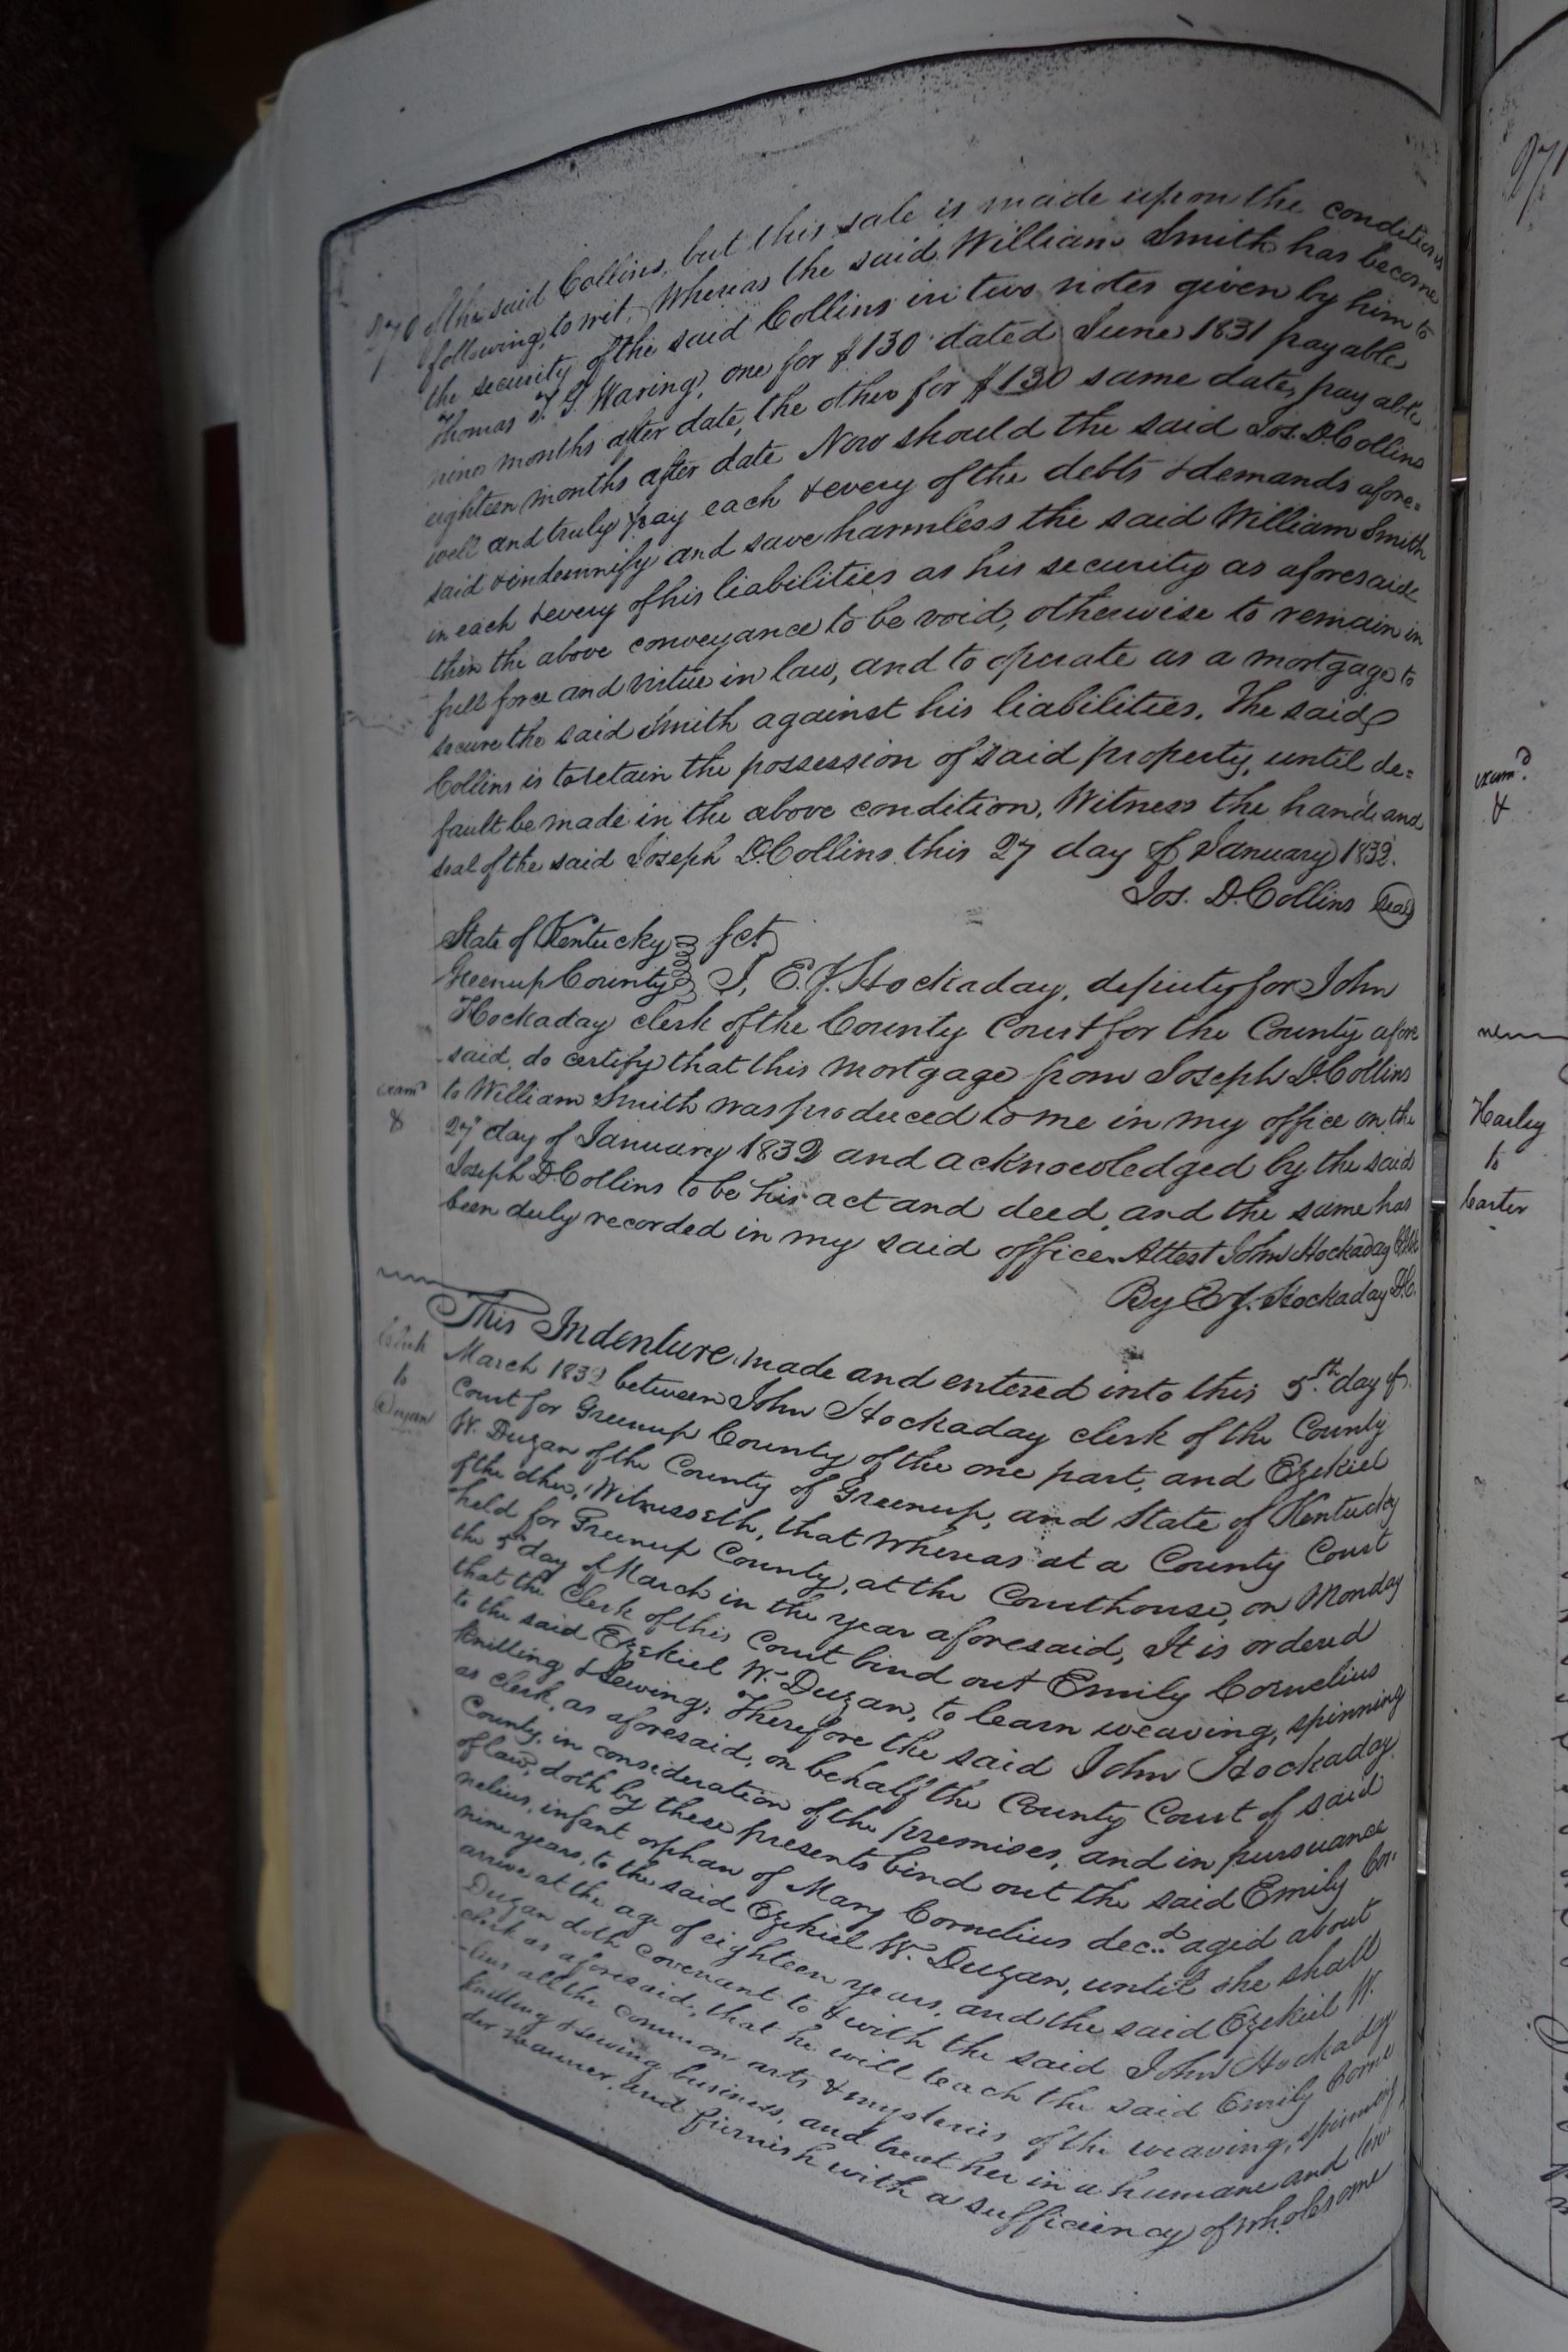 of the said Collins, but this sale is made upon the conditions
following, to wit, Whereas the said William Smith has become
the security of the said Collins in two notes given by him to
Thomas T. G. Waring, one for $130 dated June 1831 payable
nine months after date, the other for $130 same date, payable
eighteen months after date Now should the said Jos. D. Collins
well and truly pay each & every of the debts & demands afore=
said & indemnify and save harmless the said William Smith
in each & every of his liabilities as his security as aforesaid
then the above conveyance to be void, otherwise to remain in
full force and virtue in law, and to operate as a mortgage to
secure the said Smith against his liabilities. The said
Collins is to retain the possession of said property, until de=
fault be made in the above condition. Witness the hand and
seal of the said Joseph D. Collins this 27 day of January 1832.
Jos. D. Collins Seal
State of Kentucky } sct
Greenup County } I, E. J. Hockaday, deputy for John
Hockaday clerk of the County Court for the County afore
said, do certify that this mortgage from Joseph D. Collins
exam.d to William Smith was produced to me in my office on the
& 27 day of January 1832 and acknowledged by the said
Joseph D. Collins to be his act and deed, and the same has
been duly recorded in my said office. Attest John Hockaday
By E. J. Hockaday D.C.
This Indenture, made and entered into this 5.th day of
to
March 1832 between John Hockaday clerk of the County
Court for Greenup County of the one part, and Ezekiel
W. Duzan of the County of Greenup, and State of Kentucky
of the other, Witnesseth, that Whereas at a County Court
held for Greenup County, at the Courthouse, on Monday
the 5th day of March in the year aforesaid, It is ordered
that the Clerk of this Court bind out Emily Cornelius
to the said Ezekiel W. Duzan, to learn weaving, spinning
knitting & sewing; Therefore the said John Hockaday
as clerk, as aforesaid, on behalf the County Court of said
County, in consideration of the premises, and in pursuance
of law, doth by these presents bind out the said Emily Cor-
nelius, infant orphan of Mary Cornelius dec.d aged about
nine years, to the said Ezekiel W. Duzan, until she shall
arrive at the age of eighteen years, and the said Ezekiel W.
Duzan doth covenant to & with the said John Hockaday
clerk as aforesaid, that he will teach the said Emily Corne
-lius all the common arts & mysteries of the weaving, spinning,
knitting & sewing business, and treat her in a humane and ten
der manner, and furnish with a sufficiency of wholesome
exam.d
&
Harley
to
Carter